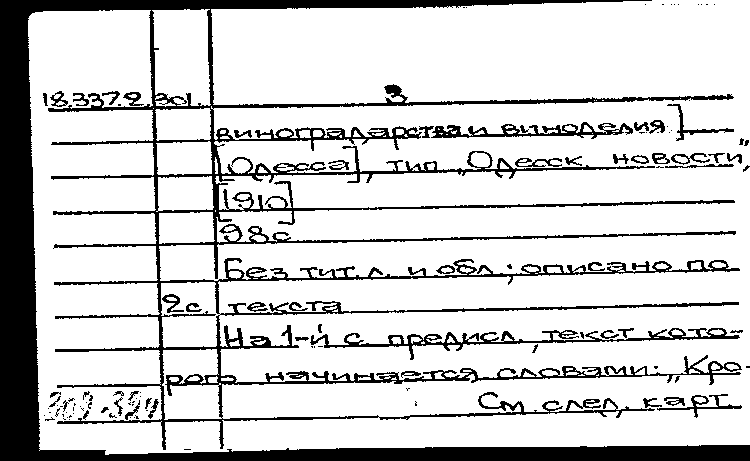 18.337.2.301. 3
виноградарства и виноделия]
[Одесса], тип. „Одесск. новости",
[1910]
98с
Без тит. л. и обл.; описано по
2с. текста
На 1-й с. предисл., текст кото-
рого начинается словами: „Кро-
309-324 См. след. карт.